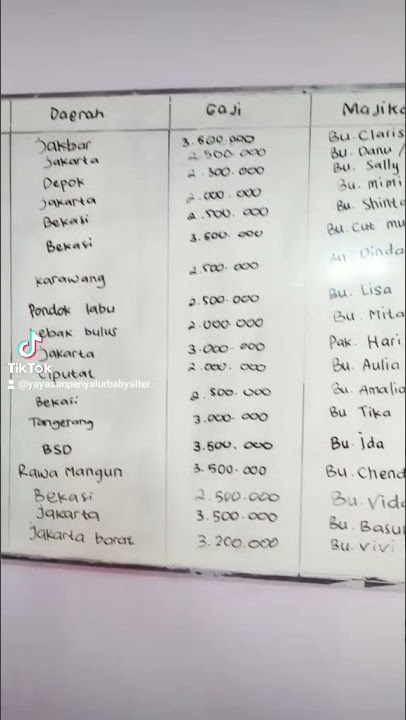 Daerah Gaji Majika
Jakbar 3.600.000 Bu. Claris
Jakarta 2.500.000 Bu. Danu
Depok 2.300.000 Bu. Sally
Jakarta 2.000.000 Bu. mimi
Bekasi 2.500.000 Bu. Shinta
Bekasi 3.600.000 Bu. Cut mu
Karawang 2.500.000 Bu. Dinda
Pondok labu 2.500.000 Bu. Lisa
Lebak bulus 2.000.000 Bu. Mita
Jakarta 3.000.000 Pak. Hari
Ciputat 2.000.000 Bu. Aulia
Bekasi 2.500.000 Bu. Amalia
Tangerang 3.000.000 Bu Tika
BSD 3.500.000 Bu. Ida
Rawa Mangun 3.500.000 Bu. Chend
Bekasi 2.500.000 Bu. Vida
Jakarta 3.500.000 Bu. Basu
Jakarta barat 3.200.000 Bu. vivi
TikTok
@yayasanpenyalurbabysiter